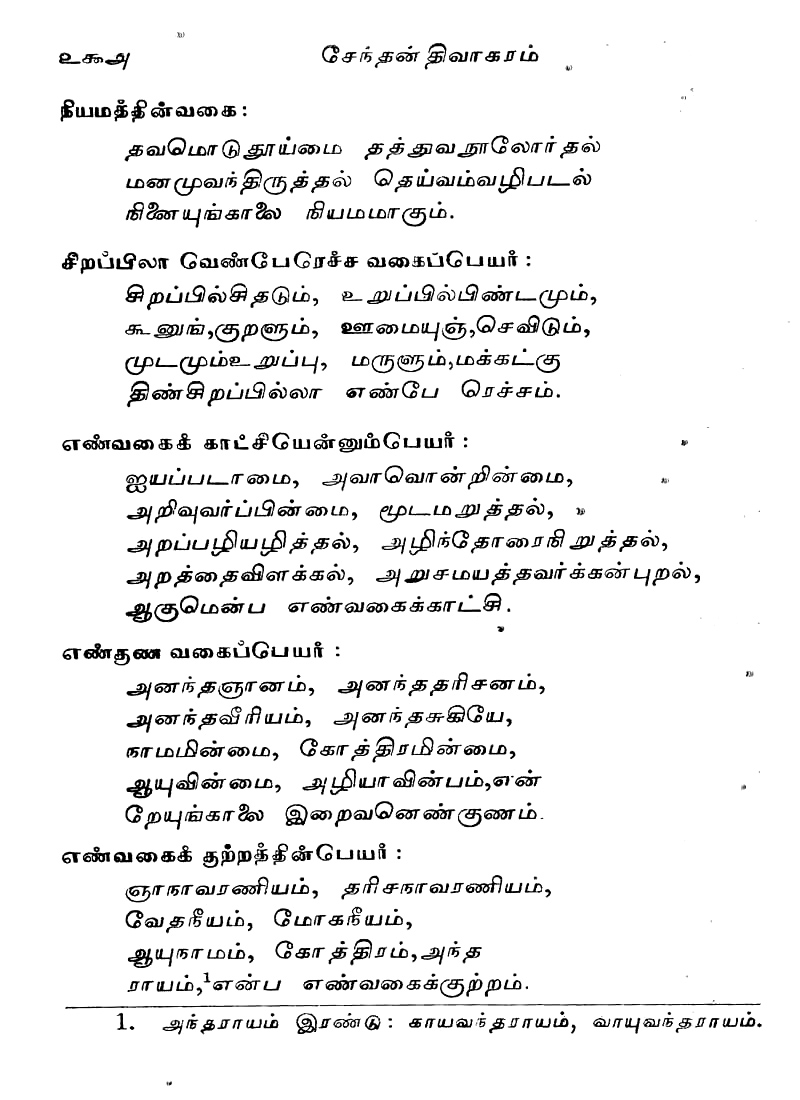 ௨௯௮ சேந்தன் திவாகரம்
நியமத்தின்வகை:
தவமொடுதூய்மை தத்துவநூலோர்தல்
மனமுவந்திருத்தல் தெய்வம்வழிபடல்
நினையுங்காலை நியமமாகும்.
சிறப்பிலா வேண்பேரெச்ச வகைப்பெயர்:
சிறப்பில்சிதடும், உறுப்பில்பிண்டமும்,
கூனுங்,குறளும், ஊமையுஞ்,செவிடும்,
முடமும்உறுப்பு, மருளும்,மக்கட்கு
திண்சிறப்பில்லா எண்பே ரெச்சம்.
எண்வகைக் காட்சியென்னும்பெயர்:
ஐயப்படாமை, அவாவொன்றின்மை,
அறிவுவர்ப்பின்மை, மூடமறுத்தல்,
அறப்பழியழித்தல், அழிந்தோரைநிறுத்தல்,
அறத்தைவிளக்கல், அறுசமயத்தவர்க்கன்புறல்,
ஆகுமென்ப எண்வகைக்காட்சி.
எண்குண வகைப்பெயர்:
அனந்தஞானம், அனந்ததரிசனம்,
அனந்தவீரியம், அனந்தசுகியே,
நாமமின்மை, கோத்திரமின்மை,
ஆயுவின்மை, அழியாவின்பம்,என்
றேயுங்காலை இறைவனெண்குணம்.
எண்வகைக் குற்றத்தின்பெயர்:
ஞாநாவரணியம், தரிசநாவரணியம்,
வேதநீயம், மோகநீயம்,
ஆயுநாமம், கோத்திரம்,அந்த
ராயம்,¹என்ப எண்வகைக்குற்றம்.
1. அந்தராயம் இரண்டு: காயவந்தராயம், வாயுவந்தராயம்.